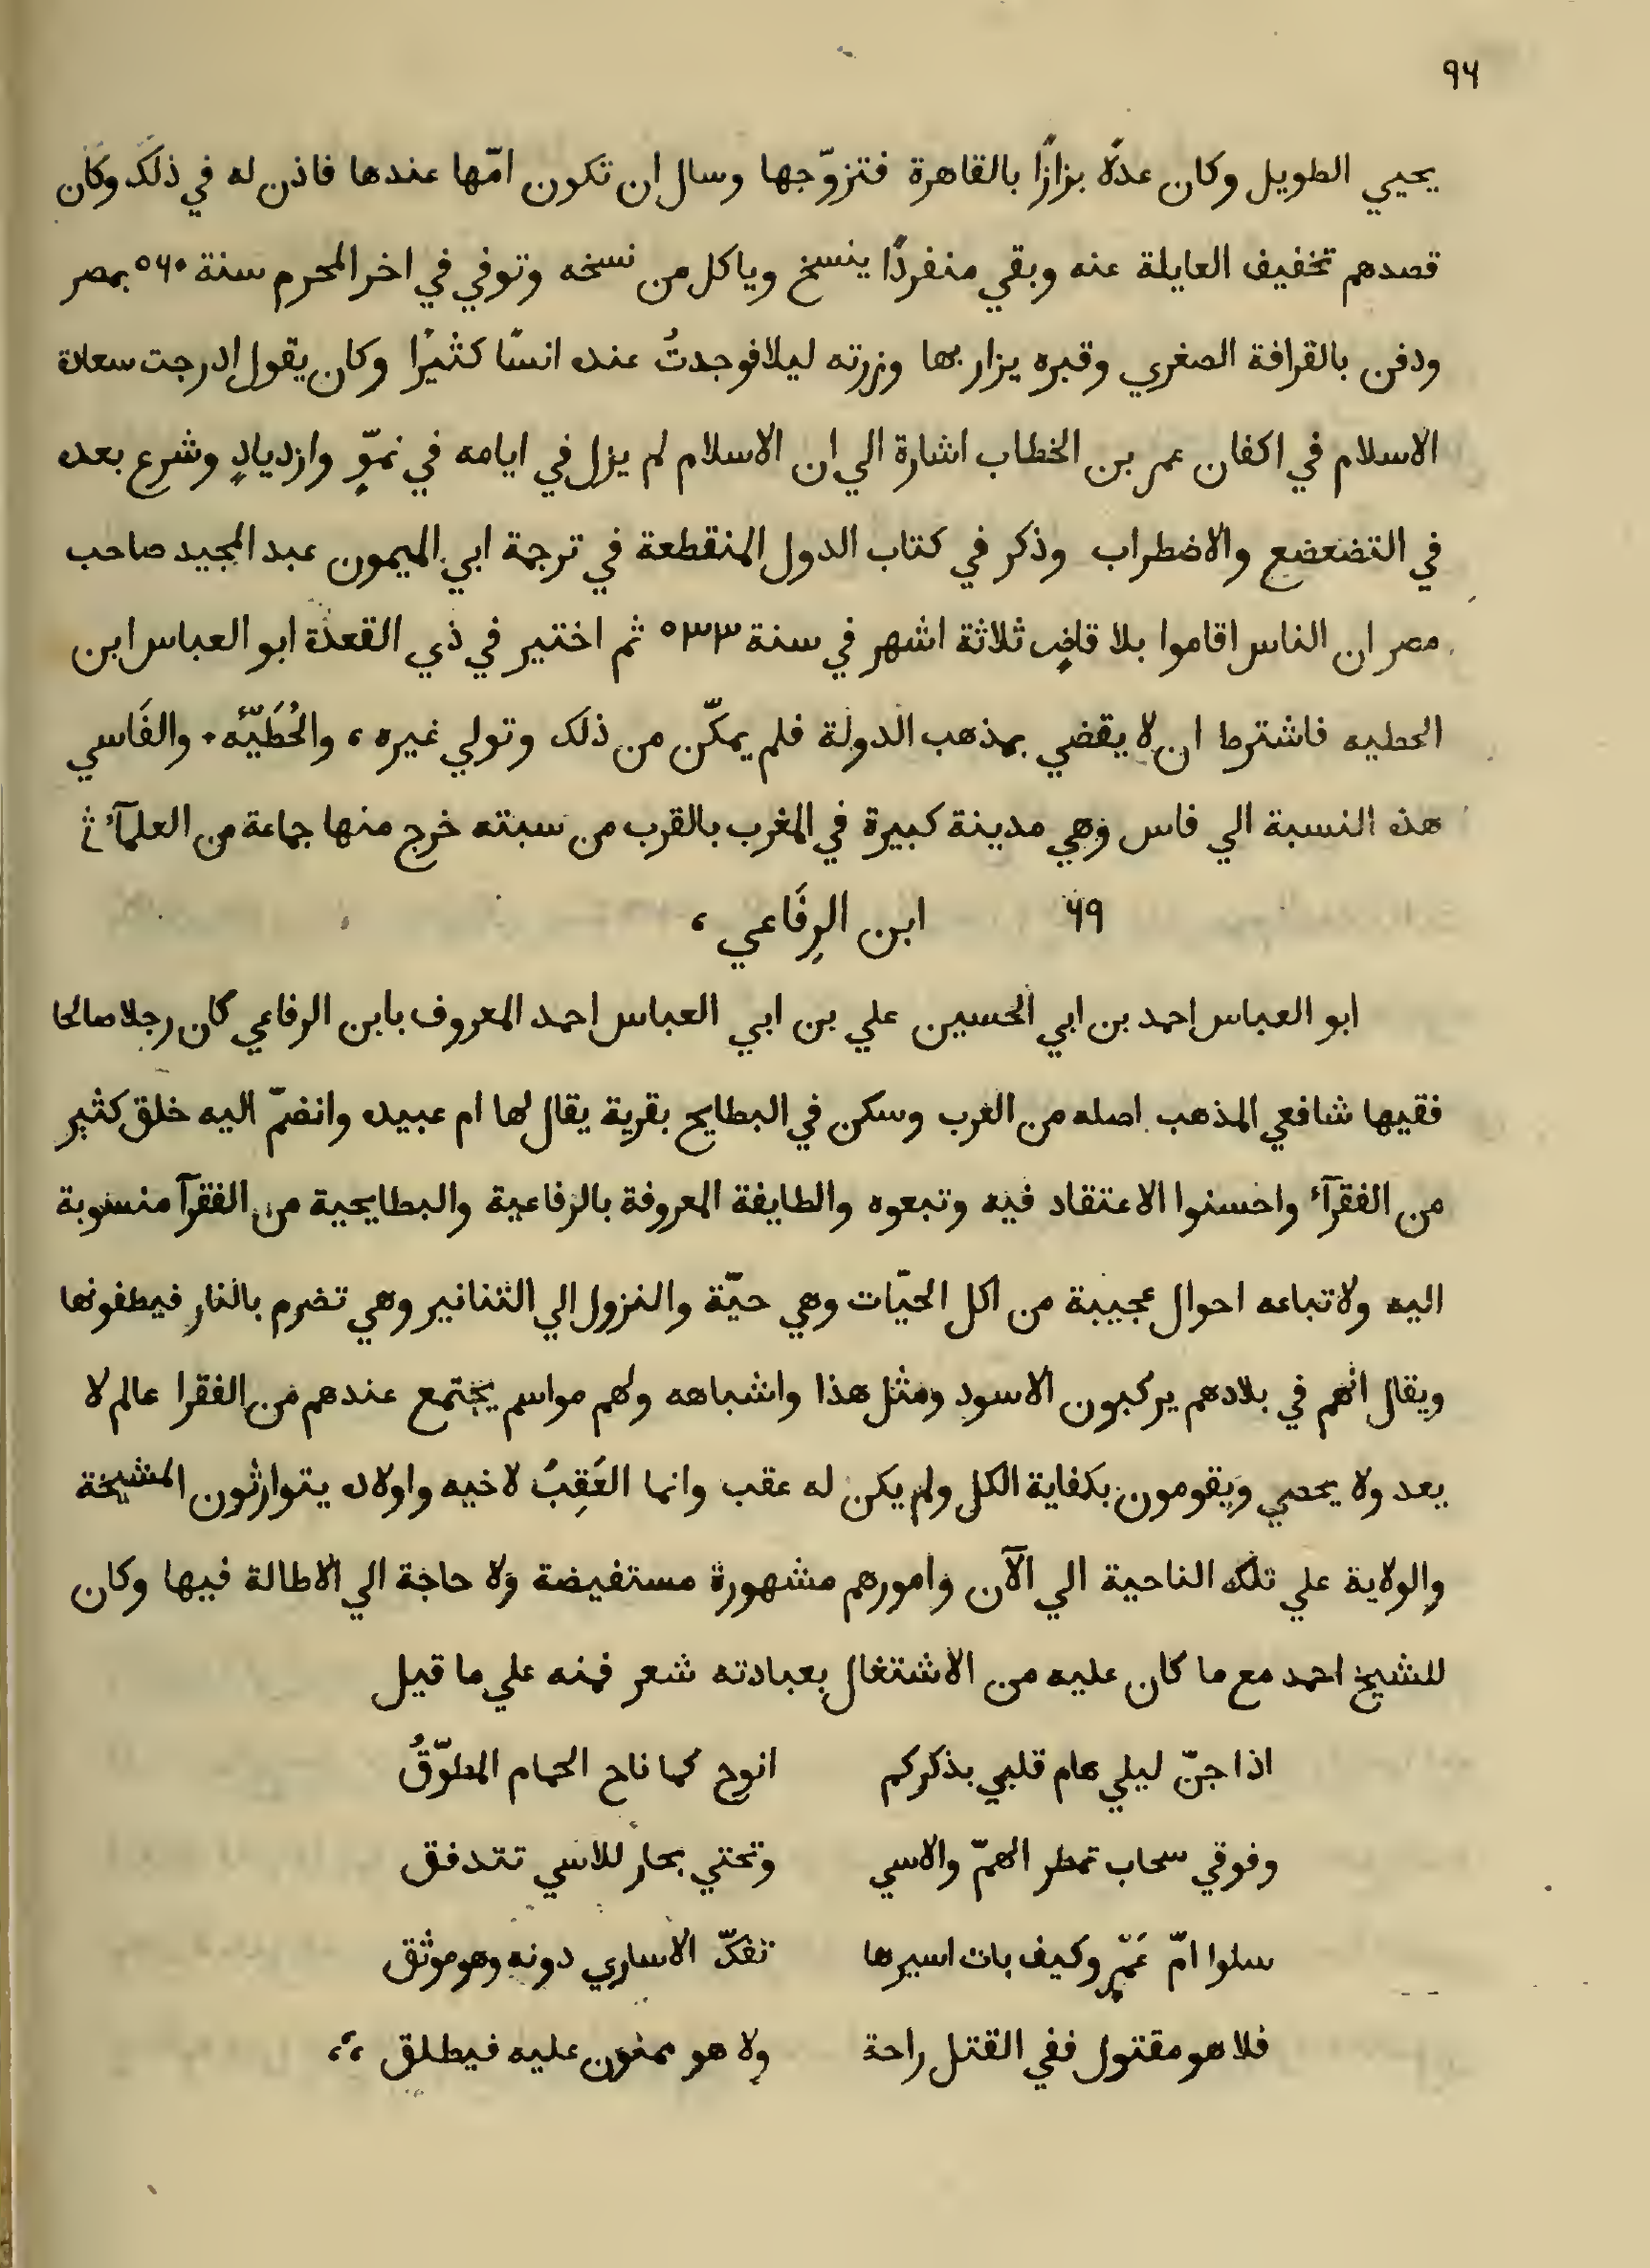 ٩٤
يحيي الطويل وكان عدلًا بزازًا بالقاهرة فتزوّجها وسال ان تكون امّها عندها فاذن له في ذلك وكان
قصدهم تخفيف العايلة عنه وبقي منفردًا ينسخ وياكل من نسخه وتوفي في اخر المحرم سنة ٥٤٠ بمصر
ودفن بالقرافة الصغري وقبره يزار بها وزرته ليلا فوجدتُ عنده انسًا كثيرًا وكان يقول ادرجت سعادة
الاسلام في اكفان عمر بن الخطاب اشارة الي ان الاسلام لم يزل في ايامه في نموٍّ وازديادٍ وشرع بعده
في التضعضع والاضطراب وذكر في كتاب الدول المنقطعة في ترجمة ابي الميمون عبد المجيد صاحب
مصر ان الناس اقاموا بلا قاضٍ ثلاثة اشهر في سنة ٥٣٣ ثم اختير في ذي القعدة ابو العباس ابن
الحطيه فاشترط ان لا يقضي بمذهب الدولة فلم يمكّن من ذلك وتولي غيره ، والحُطَيّئه ٠ والفَاسي
هذه النسبة الي فاس وهي مدينة كبيرة في المغرب بالقرب من سبته خرج منها جماعة من العلمآء ؞
٤٩ ابن الرِفَاعي ،
ابو العباس احمد بن ابي الحسين علي بن ابي العباس احمد المعروف بابن الرفاعي كان رجلا صالحا
فقيها شافعي المذهب اصله من الغرب وسكن في البطايح بقرية يقال لها ام عبيده وانضمّ اليه خلق كثير
من الفقرآء واحسنوا الاعتقاد فيه وتبعوه والطايفة المعروفة بالرفاعية والبطايحية من الفقرآ منسوبة
اليه ولاتباعه احوال عجيبة من اكل الحيّات وهي حيّة والنزول الي التنانير وهي تضرم بالنار فيطفونها
ويقال انهم في بلادهم يركبون الاسود ومثل هذا واشباهه ولهم مواسم يجتمع عندهم من الفقرا عالم لا
يعد ولا يحصي ويقومون بكفاية الكل ولم يكن له عقب وانما العَقِبُ لاخيه واولاده يتوارثون المشيخة
والولاية علي تلك الناحية الي الآن وامورهم مشهورة مستفيضة ولا حاجة الي الاطالة فيها وكان
للشيخ احمد مع ما كان عليه من الاشتغال بعبادته شعر فمنه علي ما قيل
اذا جنّ ليلي هام قلبي بذكركم انوح كما ناح الحمام المطوّقُ
وفوقي سحاب تمطر الهمّ والاسي وتحتي بحار للاسي تتدفق
سلوا امّ عَمْرٍ وكيف بات اسيرها تفكّ الاساري دونه وهو موثق
فلا هو مقتول ففي القتل راحة ولا هو ممنون عليه فيطلق ،،